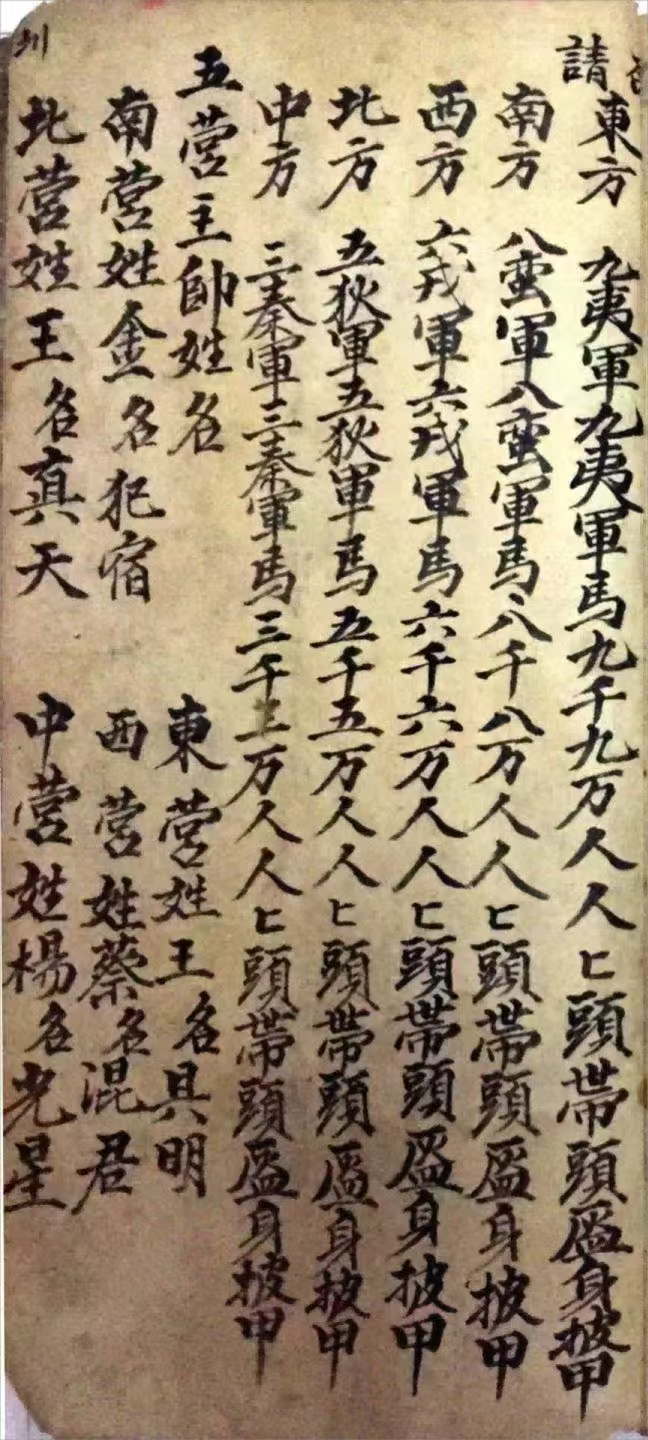 請
東方 九夷軍九夷軍馬九千九万人人匕頭帶頭盔身披甲
南方 八蛮軍八蛮軍馬八千八万人人匕頭帶頭盔身披甲
西方 六戎軍六戎軍馬六千六万人人匕頭帶頭盔身披甲
北方 五狄軍五狄軍馬五千五万人人匕頭帶頭盔身披甲
中方 三秦軍三秦軍馬三千三万人人匕頭帶頭盔身披甲
五营主帥姓名
東营姓王名具明
南营姓金名犯宿
西营姓蔡名混君
北营姓王名真天
中营姓楊名光星